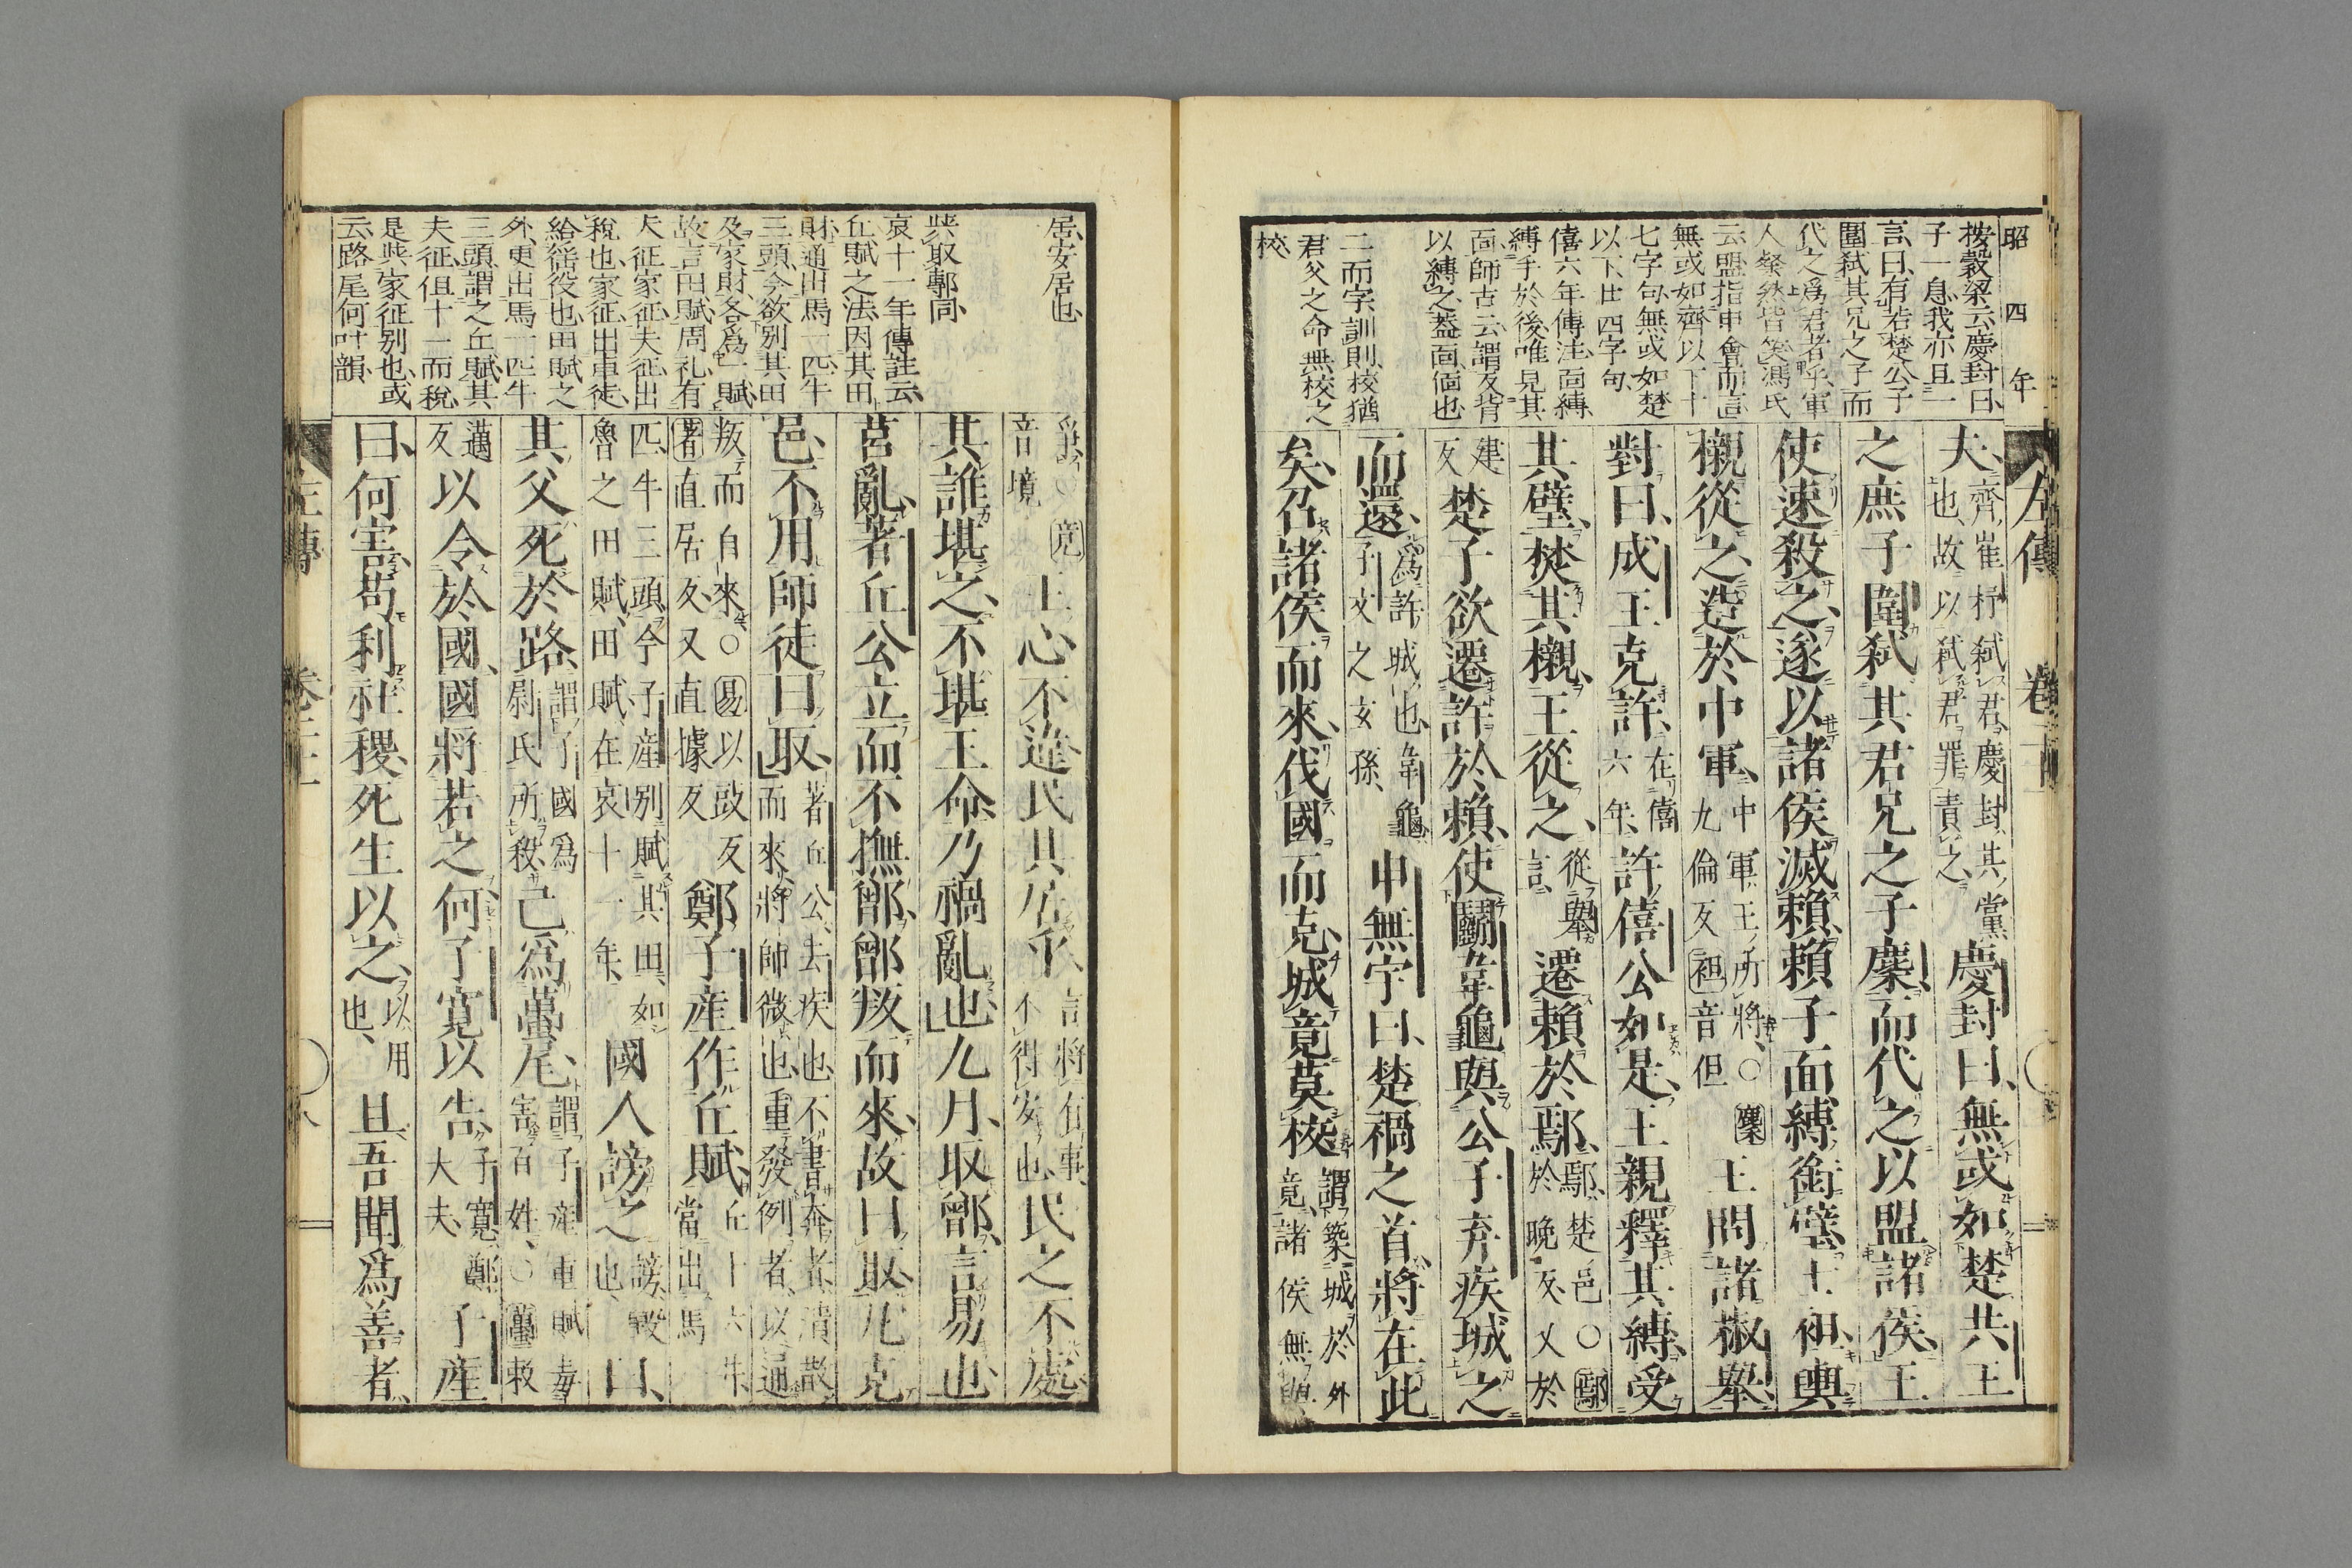 昭四年
按穀梁云慶封曰
子一息我亦且一
言曰有若楚公子
圍弑其兄之子而
代之爲君者乎軍
人粲然皆笑馮氏
云盟指申會而言
無或如齊以下十
七字句無或如楚
以下廿四字句
僖六年傳注面縛
縛手於後唯見其
面師古云謂反背
以縛之蓋面偭也
二而字訓則校猶
君父之命無校之
校
左傳 卷二十
夫齊崔杼弑君慶封其黨
也故以弑君罪責之
慶封曰無或如楚共王
之庶子圍弑其君兄之子麇而代之以盟諸侯王
使速殺之遂以諸侯滅賴賴子面縛銜璧士袒輿
櫬從之造於中軍
中軍王所將○麇
九倫反袒音但
王問諸椒舉
對曰成王克許
在僖
六年
許僖公如是王親釋其縛受
其璧焚其櫬王從之
從舉
言
遷賴於鄢
鄢楚邑○鄢
於晚反又於
建
反
楚子欲遷許於賴使鬭韋龜與公子弃疾城之
而還
爲許城也韋龜
子文之玄孫
申無宇曰楚禍之首將在此
矣召諸侯而來伐國而克城竟莫校
謂築城於外
竟諸侯無與
居安居也
取鄟同
哀十一年傳註云
丘賦之法因其田
財通出馬一匹牛
三頭今欲別其田
及家財各爲一賦
故言田賦周礼有
夫征家征夫征出
稅也家征出車徒
給徭役也田賦之
外更出馬一匹牛
三頭謂之丘賦其
夫征伹十一而稅
是與家征別也或
云路尾何叶韻
爭○竟
音境
王心不違民其居乎
言將有事
不得安也
民之不處
其誰堪之不堪王命乃禍亂也九月取鄫言易也
莒亂著丘公立而不撫鄫鄫叛而來故曰取凡克
邑不用師徒曰取
著丘公去疾也不書奔者潰散
而來將帥微也重發例者以通
叛而自來○易以豉反
著直居反又直據反
鄭子產作丘賦
丘十六井
當出馬
匹牛三頭今子產別賦其田如
魯之田賦田賦在哀十一年
國人謗之
謗毀
也
曰
其父死於路
謂子國爲
尉氏所殺
己爲蠆尾
謂子產重賦毒
害百姓○蠆敕
邁
反
以令於國國將若之何子寬以告
子寬鄭
大夫
子產
曰何害苟利社稷死生以之
以用
也
且吾聞爲善者
左傳 卷二十